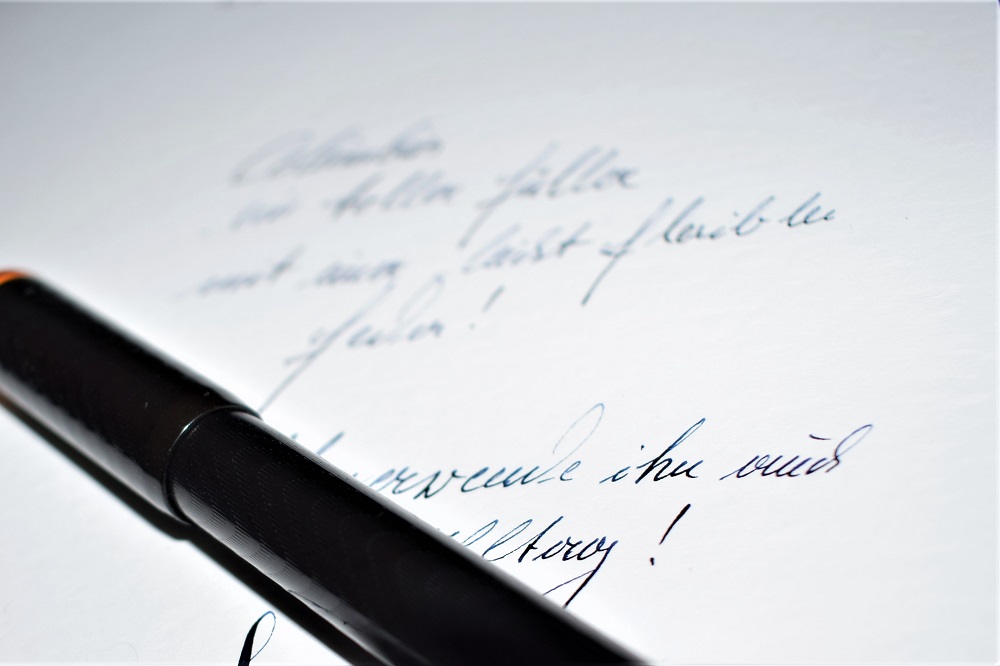 ein toller Füller
mit einer leicht flexiblen
Feder!
verwende ihn auch
Alltag!